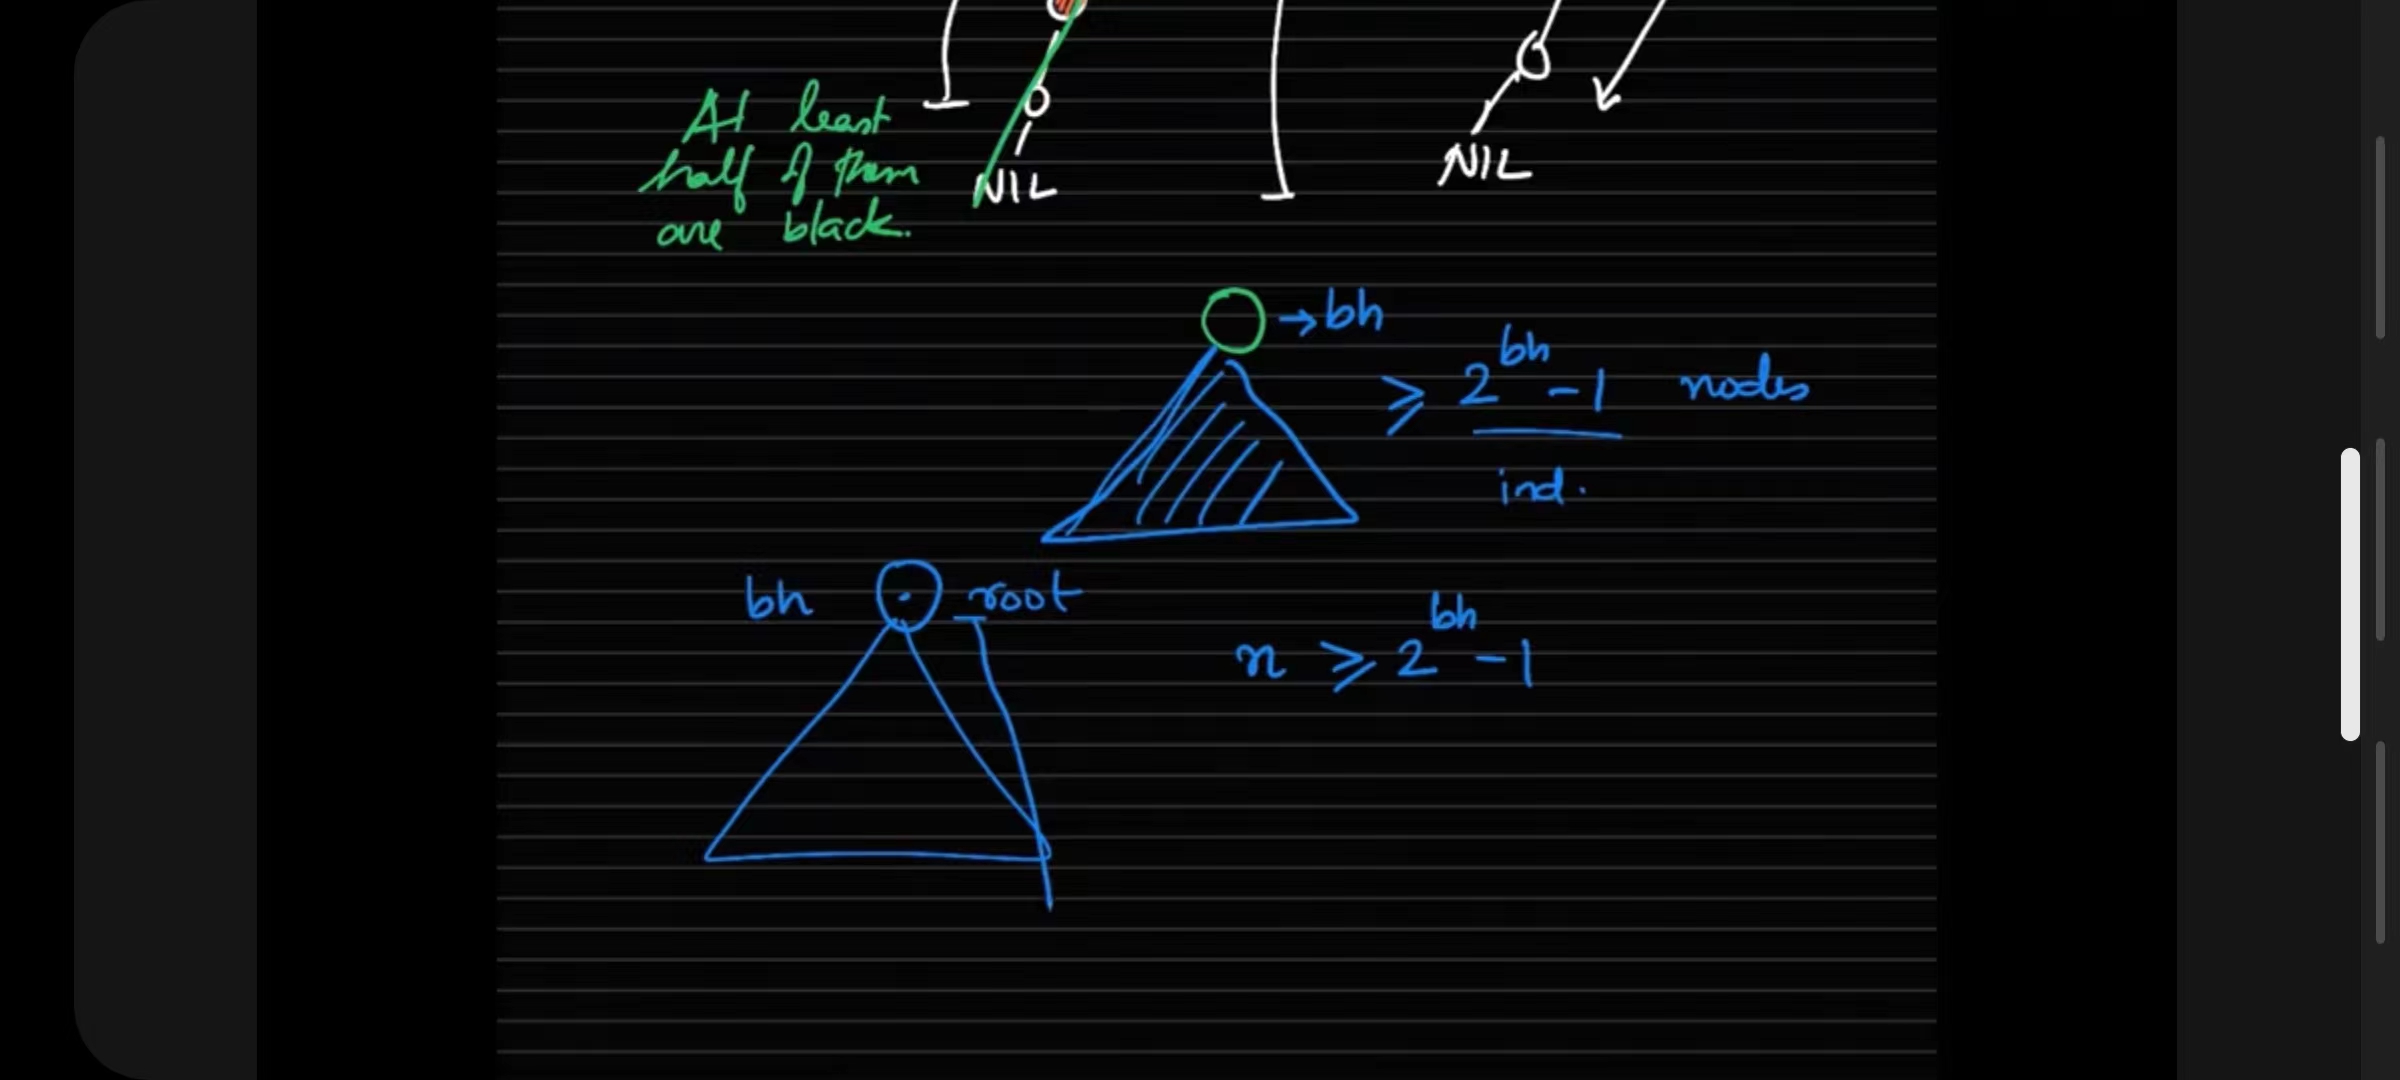 At least
half of them
are black.
NIL
NIL
→ bh
≥ 2^bh - 1 nodes
ind.
bh root
n ≥ 2^bh - 1